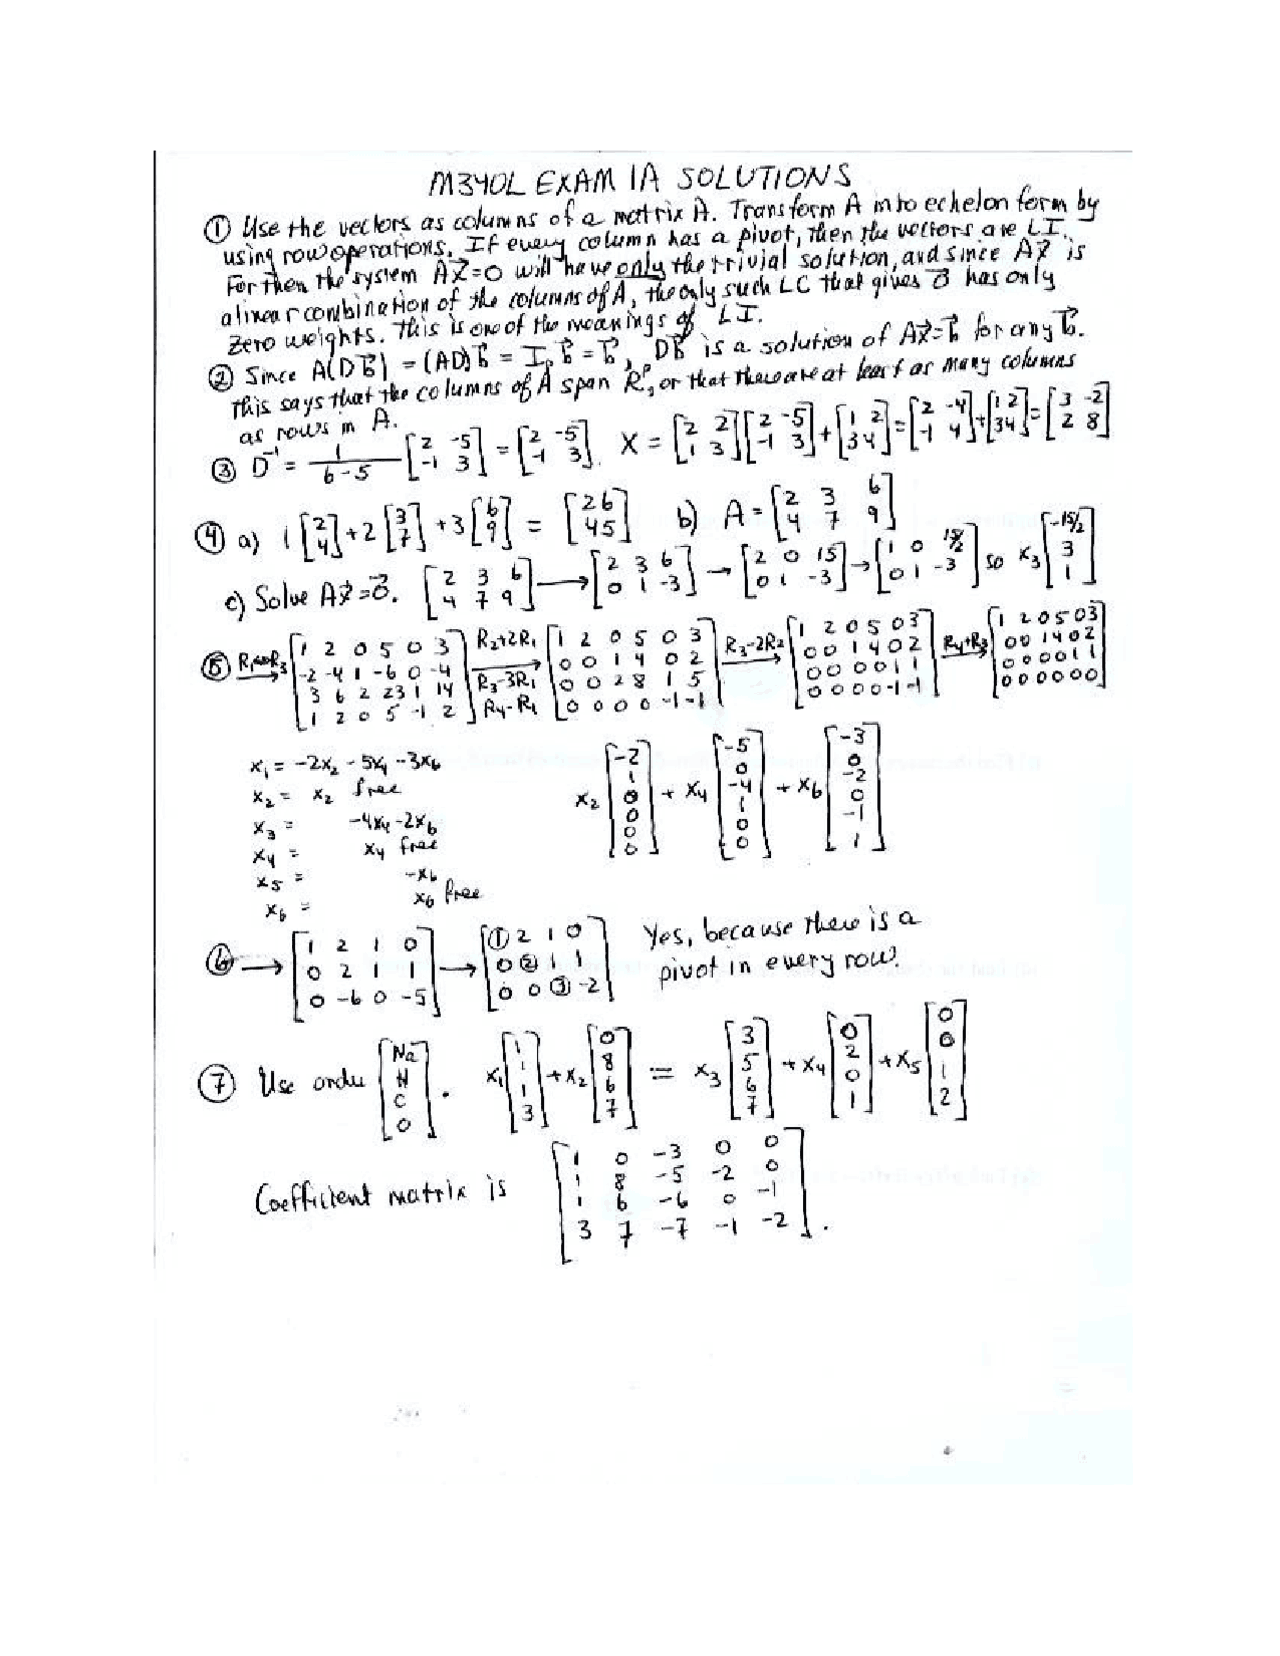 M340L EXAM 1A SOLUTIONS
① Use the vectors as columns of a matrix A. Transform A into echelon form by
using row operations. If every column has a pivot, then the vectors are LI.
For then the system Ax⃗=0 will have only the trivial solution, and since Ax⃗ is
a linear combination of the columns of A, the only such LC that gives 0⃗ has only
zero weights. This is one of the meanings of LI.
② Since A(Db⃗) = (AD)b⃗ = I_p b⃗ = b⃗, Db⃗ is a solution of Ax⃗=b⃗ for any b⃗.
This says that the columns of A span R^p, or that there are at least as many columns
as rows in A.
③ D⁻¹ = 1/(6-5) [2 -5; -1 3] = [2 -5; -1 3]. X = [2 2; 1 3][2 -5; -1 3] + [1 2; 3 4] = [2 -4; -1 4] + [1 2; 3 4] = [3 -2; 2 8]
④ a) 1[2; 4] + 2[3; 7] + 3[6; 9] = [26; 45] b) A = [2 3 6; 4 7 9]
c) Solve Ax⃗=0⃗. [2 3 6; 4 7 9] → [2 3 6; 0 1 -3] → [2 0 15; 0 1 -3] → [1 0 15/2; 0 1 -3] so x₃[-15/2; 3; 1]
⑤ R₁↔R₃ → [1 2 0 5 0 3; -2 -4 1 -6 0 -4; 3 6 2 23 1 14; 1 2 0 5 -1 2] R₂+2R₁ R₃-3R₁ R₄-R₁ → [1 2 0 5 0 3; 0 0 1 4 0 2; 0 0 2 8 1 5; 0 0 0 0 -1 -1] R₃-2R₂ → [1 2 0 5 0 3; 0 0 1 4 0 2; 0 0 0 0 1 1; 0 0 0 0 -1 -1] R₄+R₃ → [1 2 0 5 0 3; 0 0 1 4 0 2; 0 0 0 0 1 1; 0 0 0 0 0 0]
x₁ = -2x₂ - 5x₄ - 3x₆
x₂ = x₂ free
x₃ = -4x₄ -2x₆
x₄ = x₄ free
x₅ = -x₆
x₆ = x₆ free
x₂[-2; 1; 0; 0; 0; 0] + x₄[-5; 0; -4; 1; 0; 0] + x₆[-3; 0; -2; 0; -1; 1]
⑥ → [1 2 1 0; 0 2 1 1; 0 -6 0 -5] → [① 2 1 0; 0 ② 1 1; 0 0 ③ -2] Yes, because there is a
pivot in every row.
⑦ Use order [Na; H; C; O]. x₁[1; 1; 1; 3] + x₂[0; 8; 6; 7] = x₃[3; 5; 6; 7] + x₄[0; 2; 0; 1] + x₅[0; 0; 1; 2]
Coefficient matrix is [1 0 -3 0 0; 1 8 -5 -2 0; 1 6 -6 0 -1; 3 7 -7 -1 -2].